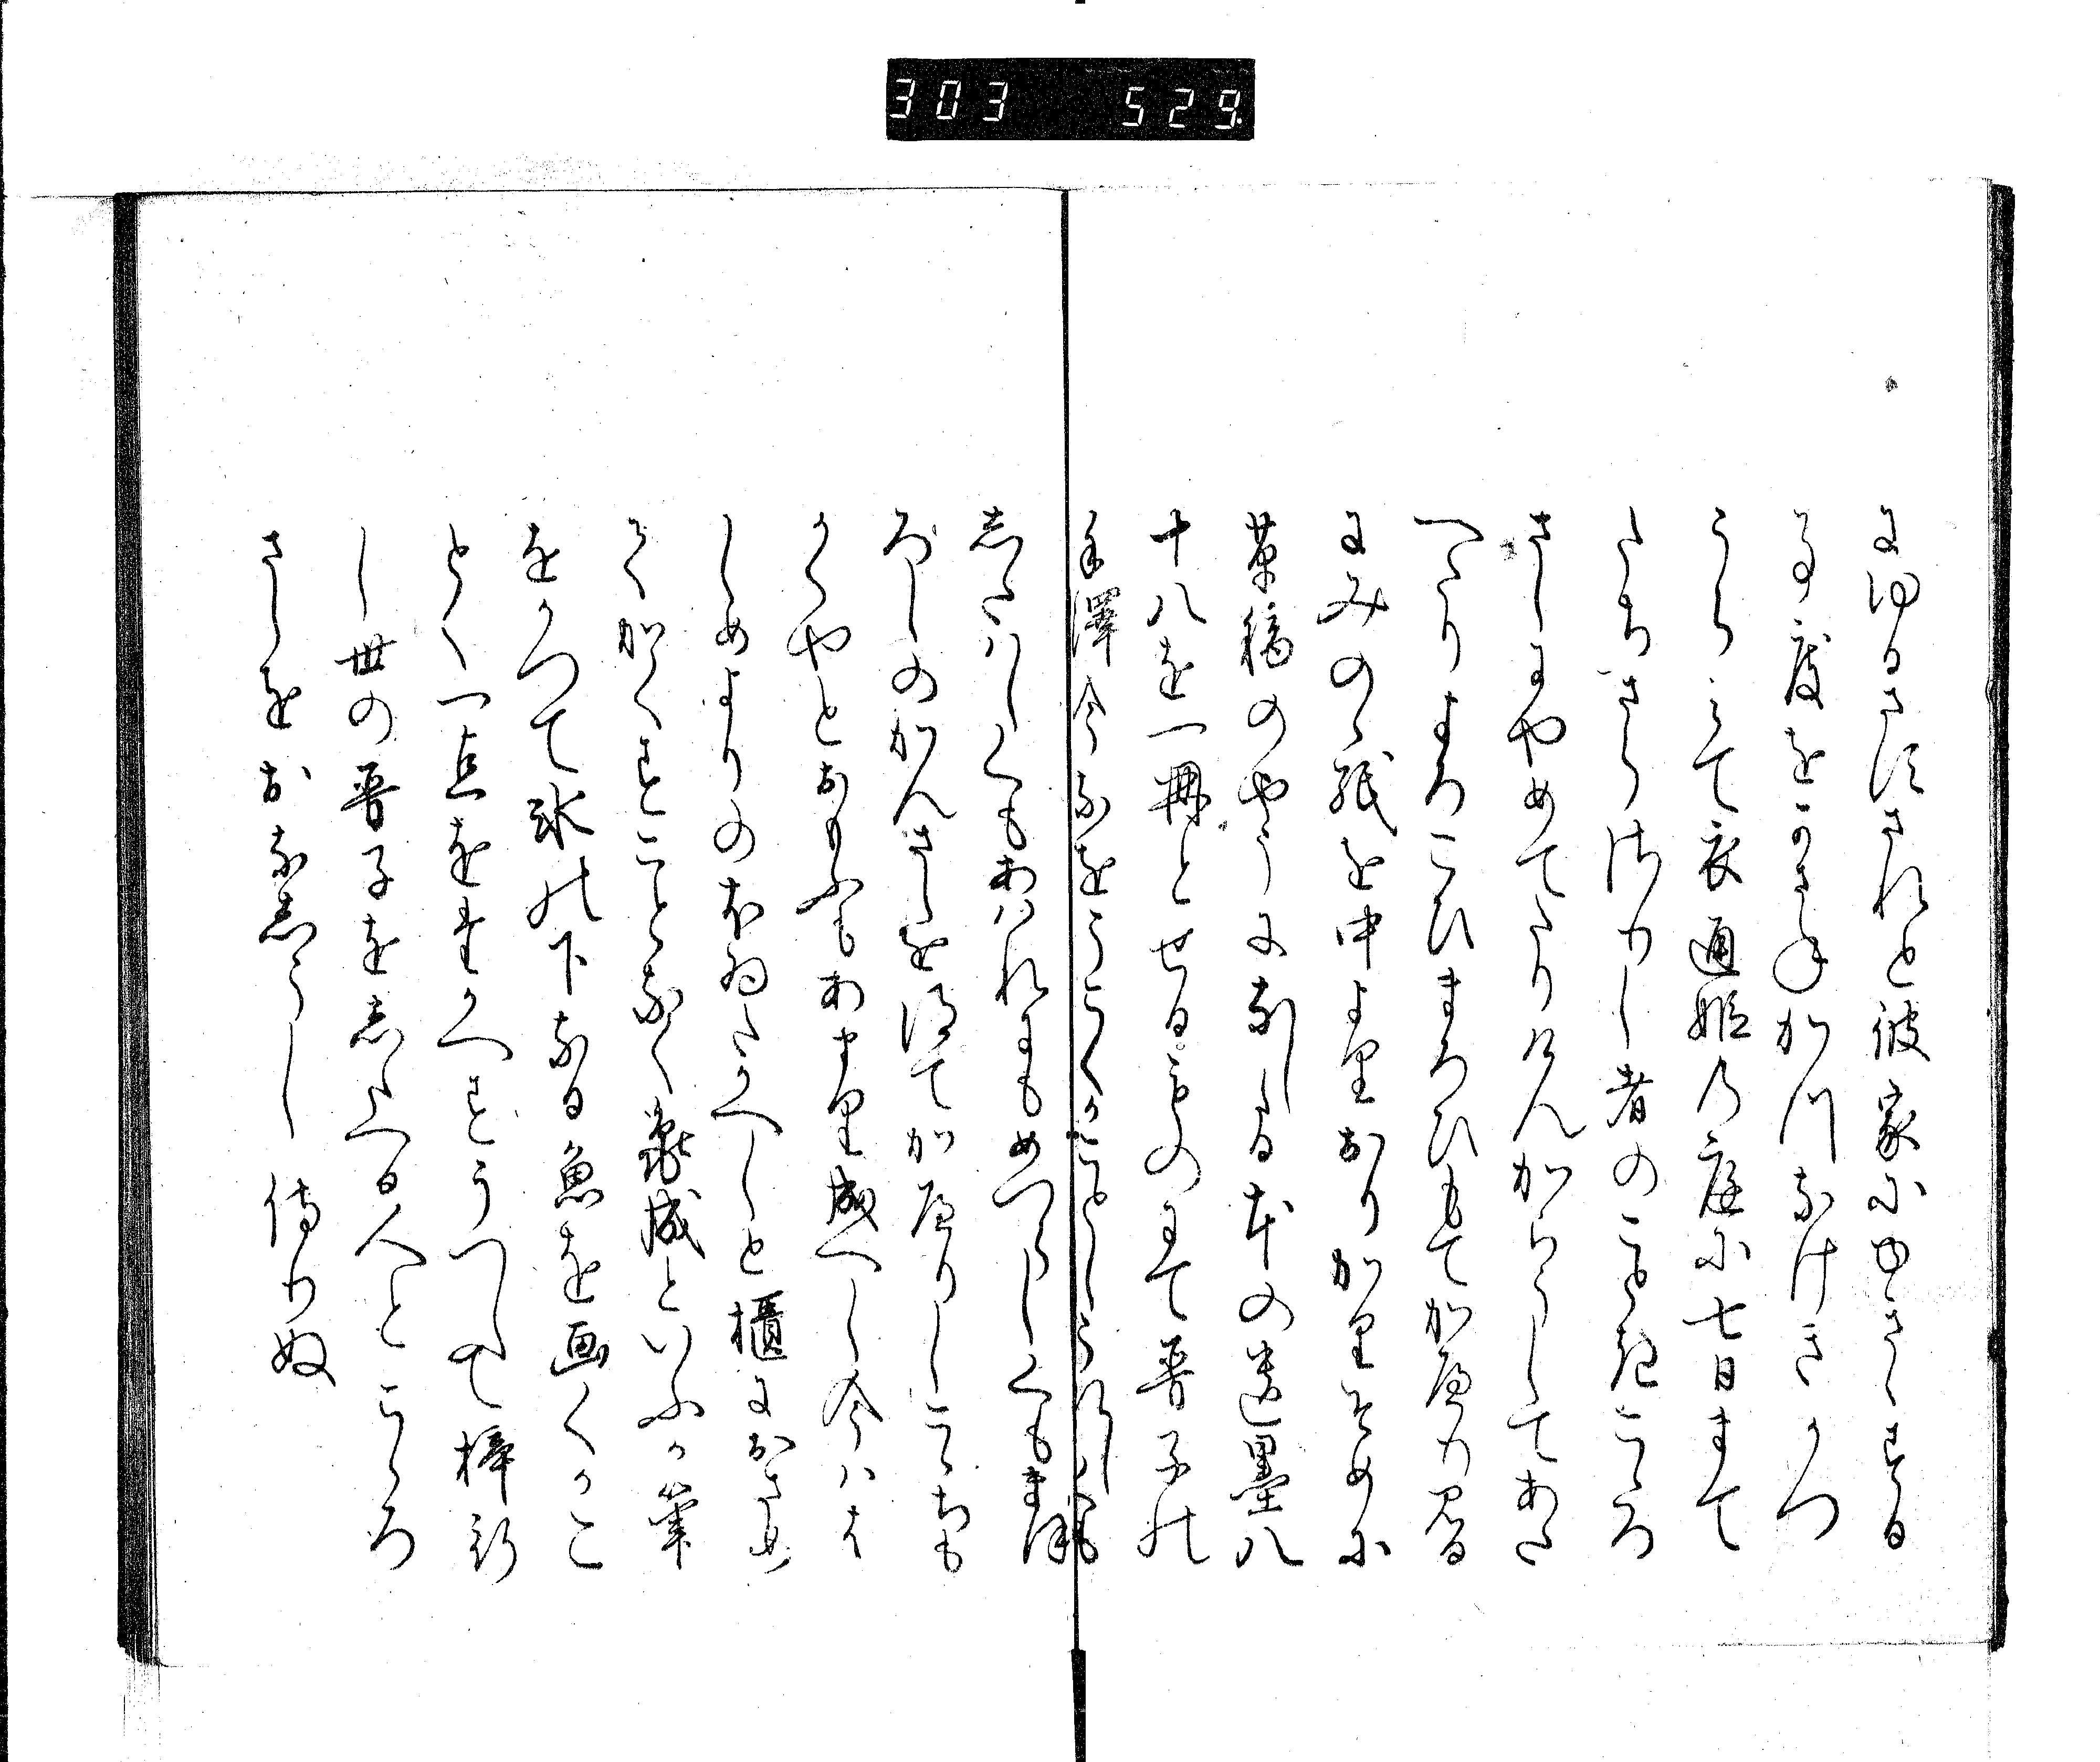 303 529
にゆるさすされと彼家にゆきゝする
事度をかさねかつなけきかつ
うらみて衣通姫の庭に七日まて
たちさらさりし者のことき
さしにやめてたりけんからうしてあた
へたりよろこひまろひもてかへり見る
にみのゝ紙を中よりおりかりそめに
草稿のやうになしたる本の遺墨八
十八を一冊とせるものにて晋子の
手澤今なをうこくかことし
したはしくもあはれにもめつらしくもまほ
ろしのかんさしを得てかへりしこゝちも
かくやとおもふもあまり成へし今はは
しめよりのほゐたかへしと櫃におさめ
てかくすことなく亀成といふか筆
をかつて氷の下なる魚を画くかこ
とく一点をたかへすうつして梓行
し世の晋子をしたへる人とこゝろ
さしをおなしうし侍りぬ